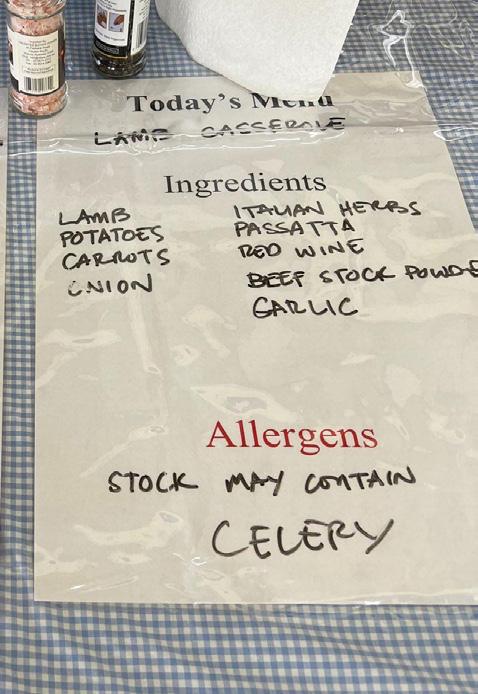 Today's Menu
LAMB CASSEROLE
Ingredients
LAMB
POTATOES
CARROTS
ONION
ITALIAN HERBS
PASSATTA
RED WINE
BEEF STOCK POWDE
GARLIC
Allergens
STOCK MAY CONTAIN
CELERY